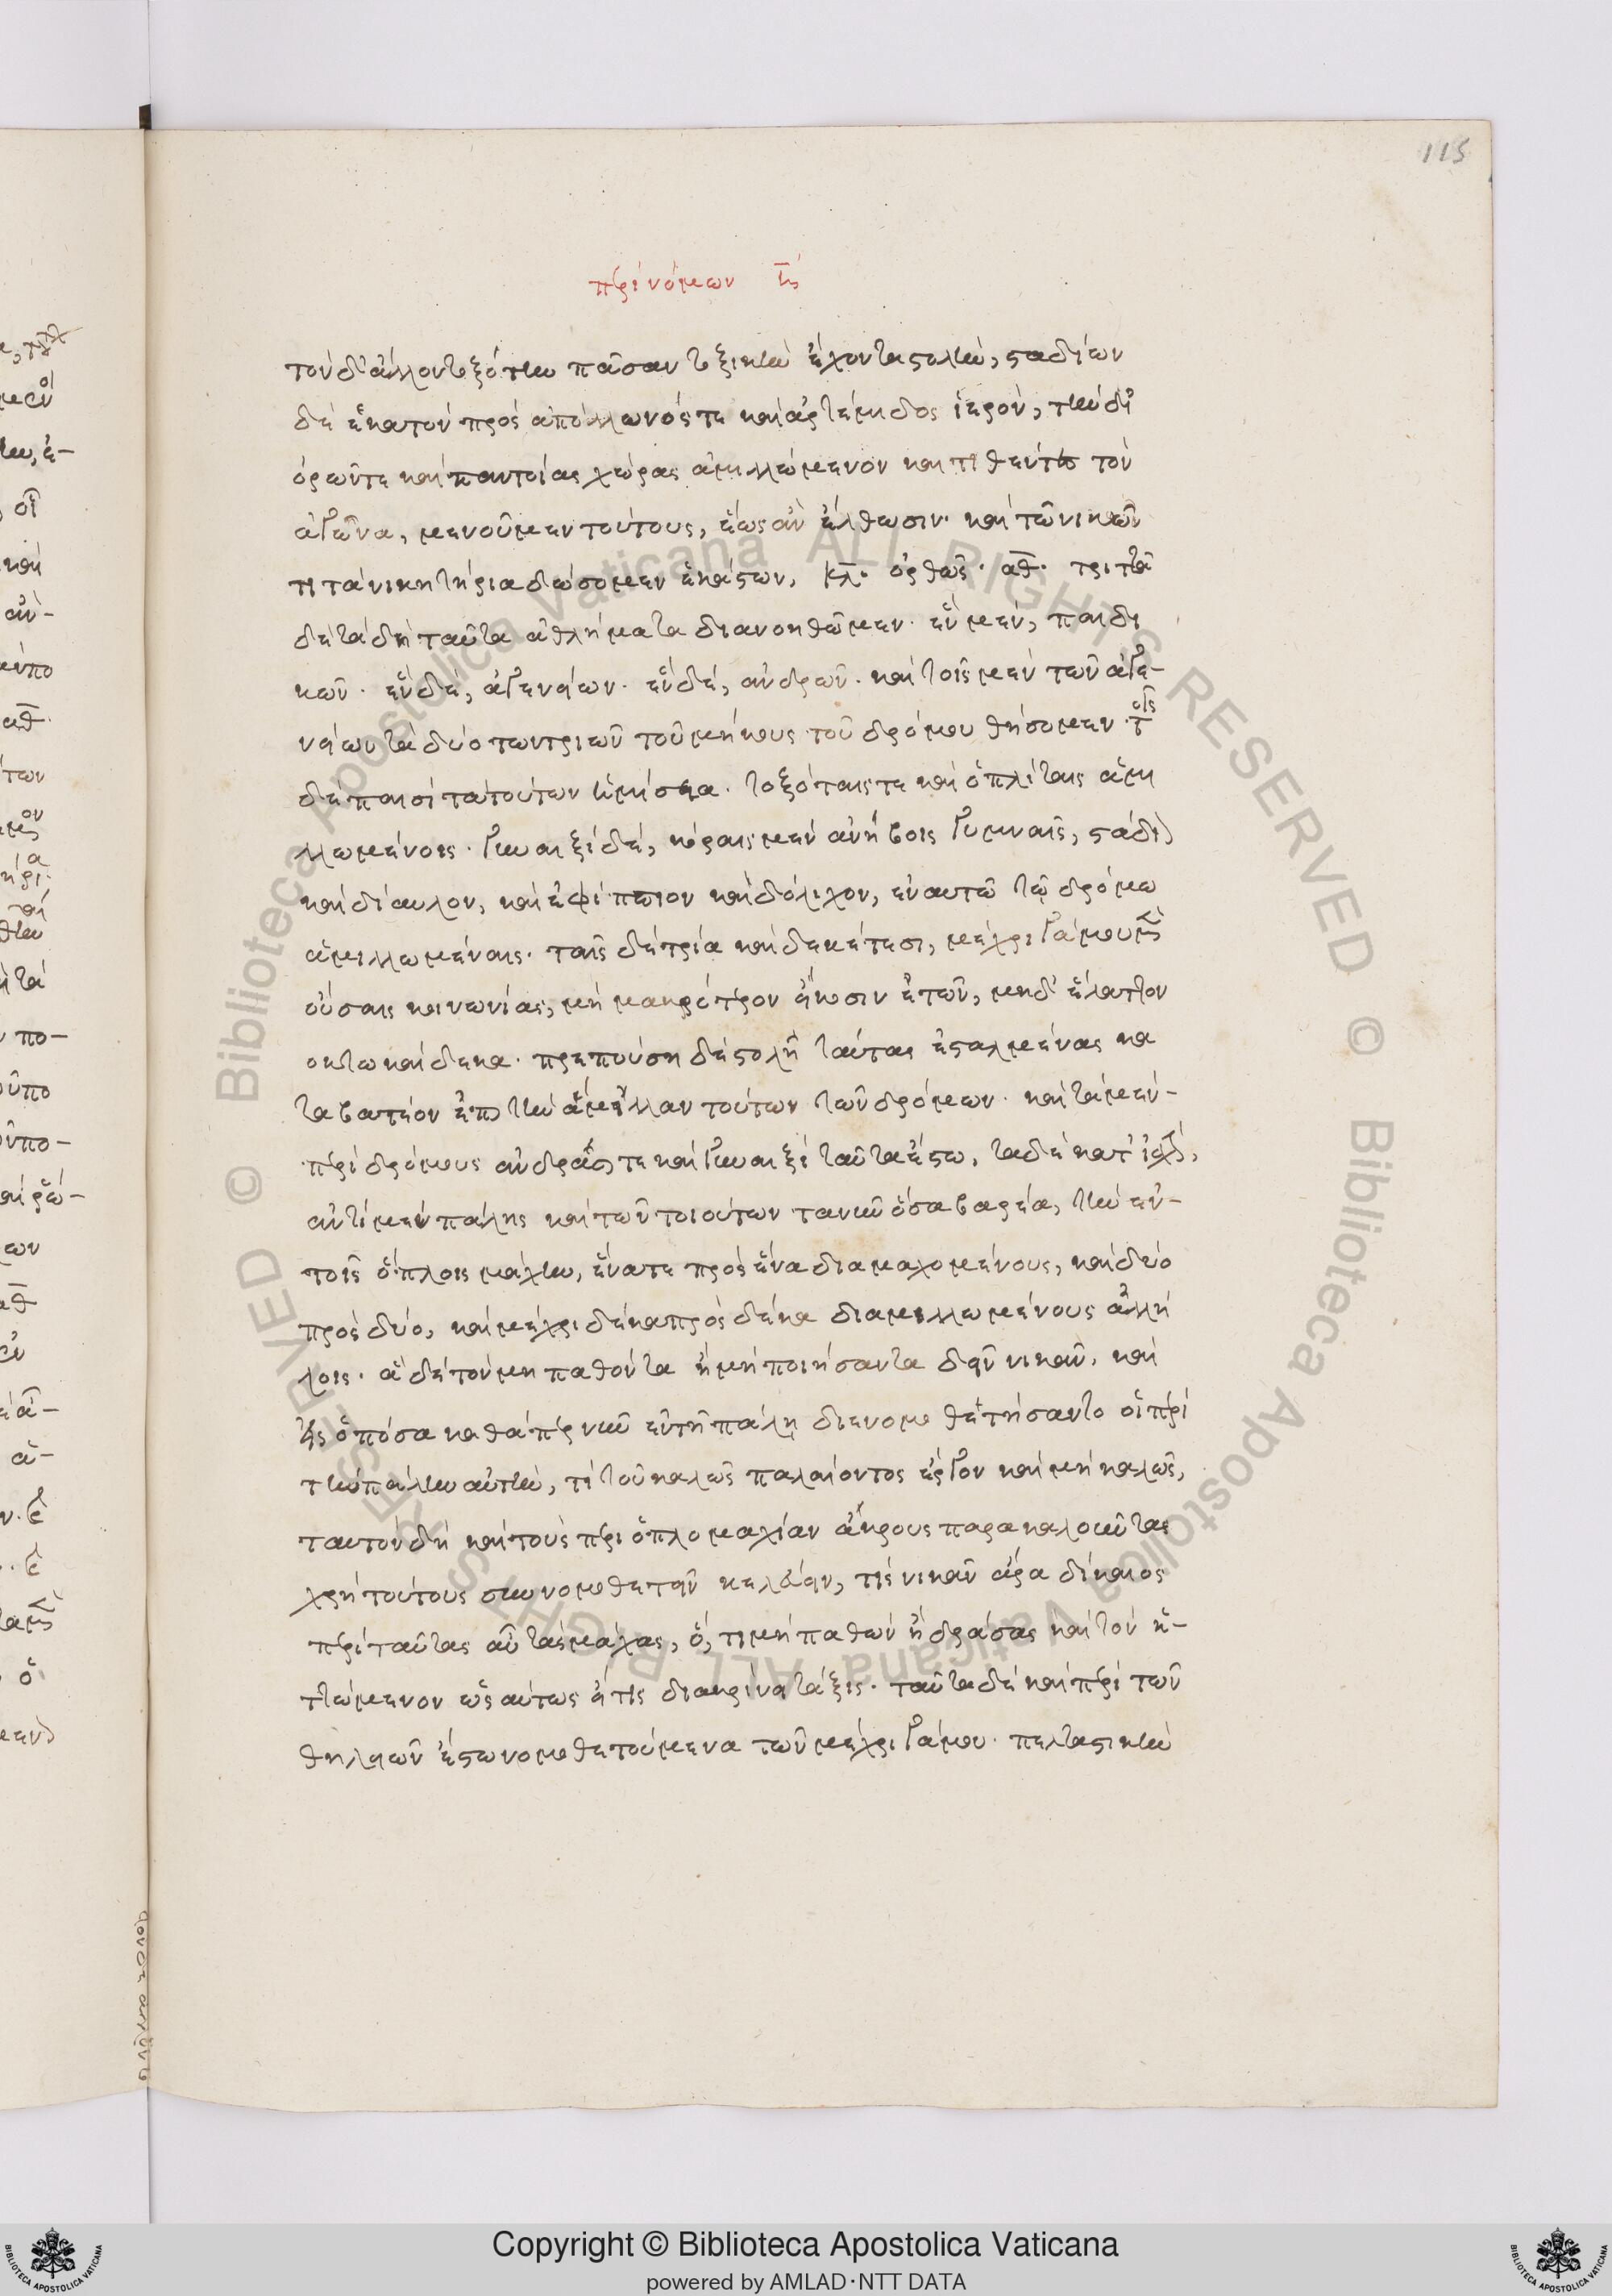 115
περὶ νόμων η
τὸν δ' ἄλλον τοξότην πᾶσαν τοξικὴν ἔχοντα στολὴν, σταδίων
δὲ ἑκατὸν πρὸς ἀπόλλωνός τε καὶ ἀρτέμιδος ἱερὸν, τὴν δι'
ὀρῶν τε καὶ παντοίας χώρας ἁμιλλώμενον καὶ τιθέντες τὸν
ἀγῶνα, μενοῦμεν τούτους, ἕως ἂν ἔλθωσιν. καὶ τῶ νικῶν
τι τὰ νικητήρια δώσομεν ἑκάστων. κλ. ὀρθῶς. ἀθ. τριττὰ
δὲ τὰ δὴ ταῦτα ἀθλήματα διανοηθῶμεν. ἓν μὲν, παιδι
κῶν. ἓν δὲ, ἀγενείων. ἓν δὲ, ἀνδρῶν. καὶ τοῖς μὲν τῶν ἀγε-
νείων τὰ δύο τῶν τριῶν τοῦ μήκους τοῦ δρόμου θήσομεν. τοῖς
δὲ παισὶ τὰ τούτων ἡμίσεα. τοξόταις τε καὶ ὁπλίταις ἁμι
λλωμένοις. γυναιξὶ δὲ, κόραις μὲν ἀνήβοις γυμναῖς, στάδιον
καὶ δίαυλον, καὶ ἐφίππιον καὶ δόλιχον, ἐν αυτῶ τῶ δρόμω
ἁμιλλωμέναις. ταῖς δὲ τρία καὶ δεκέτεσι, μέχρι γάμου μεν
ούσαις κοινωνίας, μὴ μακρότερον εἴκοσιν ἐτῶν, μηδ' ἔλαττον
οκτωκαίδεκα. πρεπούση δὲ στολῆ ταύτας ἐσταλμένας κα
ταβατέον ἐπὶ τὴν ἅμιλλαν τούτων τῶν δρόμων. καὶ τὰ μὲν-
περὶ δρόμους ἀνδράσι τε καὶ γυναιξὶ ταῦτα ἔστω, τὰ δὲ κατ' ἰσχὺν,
ἀντὶ μὲν πάλης καὶ τῶν τοιούτων τανῦν ὅσα βαρέα, τὴν ἐν-
τοῖς ὅπλοις μάχην, ἕνα τε πρὸς ἕνα διαμαχομένους, καὶ δύο
πρὸς δύο, καὶ μέχρι δέκα πρὸς δέκα διαμιλλωμένους ἀλλή
λοις. ἃ δὲ τὸν μὴ παθόντα ἢ μὴ ποιήσαντα δεῖν νικᾶν. καὶ
εἰς ὁπόσα καθάπερ νῦν ἐν τῆ πάλη διενομοθετήσαντο οἱ περὶ
τὴν πάλην αὐτὴν, τί τοῦ καλῶς παλαίοντος ἔργον καὶ μὴ καλῶς,
ταυτὸν δὴ καὶ τοὺς περὶ ὁπλομαχίαν ἄκρους παρακαλοῦντας
χρὴ τούτους συννομοθετεῖν κελεύειν, τίς νικᾶν ἄρα δίκαιος
περὶ ταύτας αὖ τὰς μάχας, ὅ, τι μὴ παθὼν ἢ δράσας καὶ τὸν ἡ-
ττώμενον ὡσαύτως ἥτις διακρίνει τάξις. ταῦτα δὲ καὶ περὶ τῶν
θηλειῶν ἔστω νομοθετούμενα τῶν μέχρι γάμου. πελταστικὴν
Copyright © Biblioteca Apostolica Vaticana
powered by AMLAD·NTT DATA